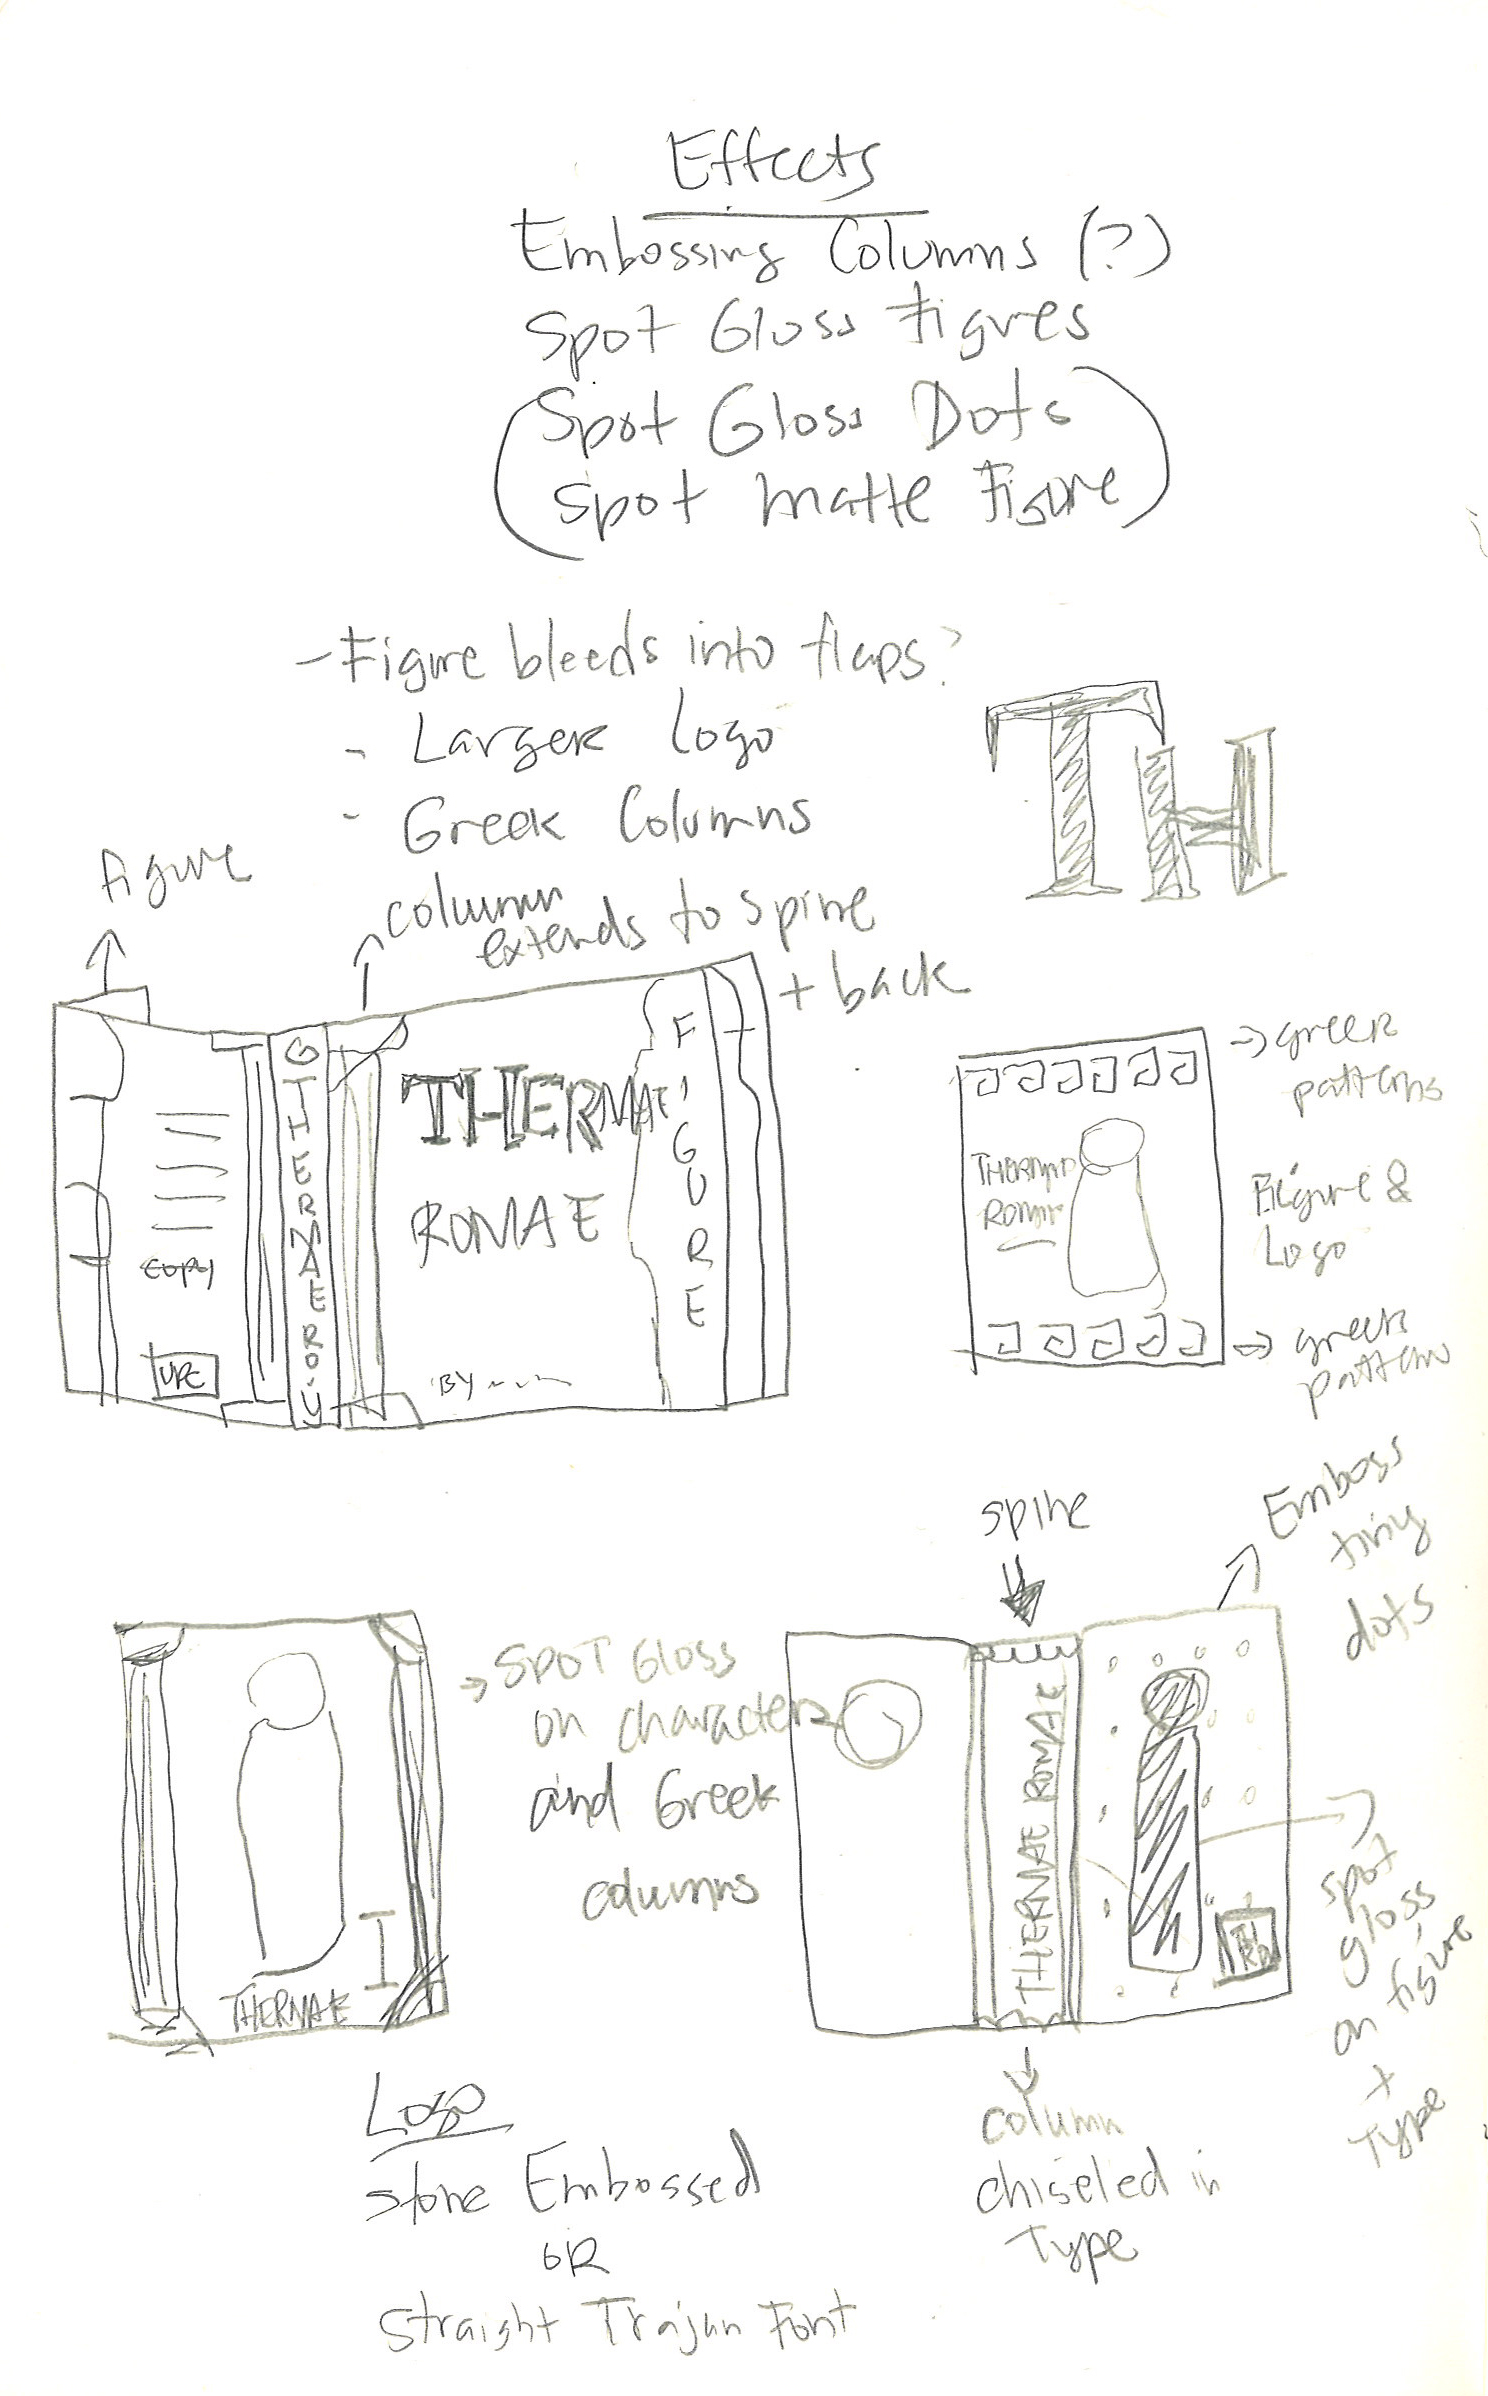 Effects
Embossing Columns (?)
Spot Gloss Figures
(Spot Gloss Dots
Spot matte Figure)
- Figure bleeds into flaps?
- Larger Logo
- Greek Columns
TH
figure
column
extends to spine
+ back
THERMAE
ROMAE
BY
FIGURE
THERMAE RO
COPY
UPC
→ greek
patterns
THERMAE
ROMAE
Figure &
Logo
→ greek
pattern
spine
Emboss
tiny
dots
→ SPOT Gloss
on characters
and Greek
columns
I
THERMAE
THERMAE ROMAE
spot
gloss
on figure
+
Type
Logo
Stone Embossed
OR
Straight Trajan Font
column
chiseled in
Type